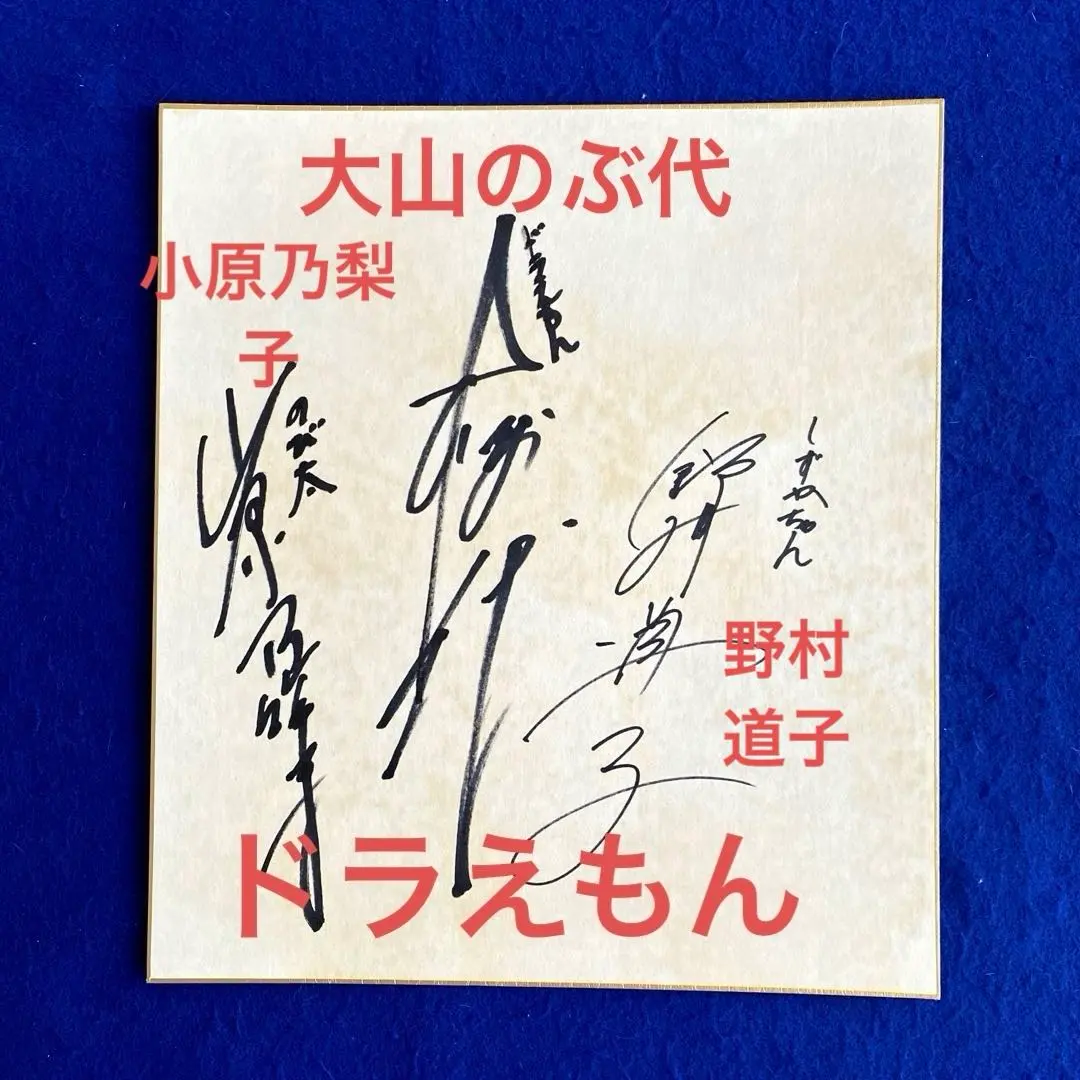 大山のぶ代
小原乃梨
子
ドラえもん
のび太
小原乃梨子
しずかちゃん
野村道子
野村
道子
ドラえもん